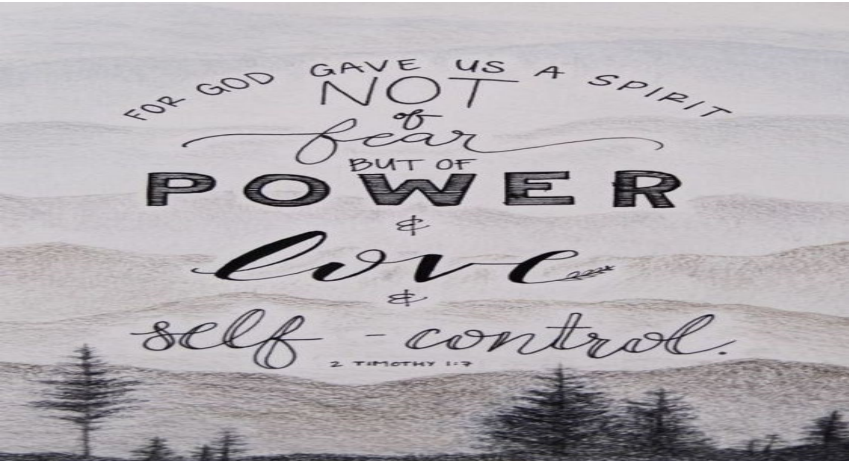 FOR GOD GAVE US A SPIRIT
NOT
of
fear
BUT OF
POWER
&
love
&
self-control.
2 TIMOTHY 1:7